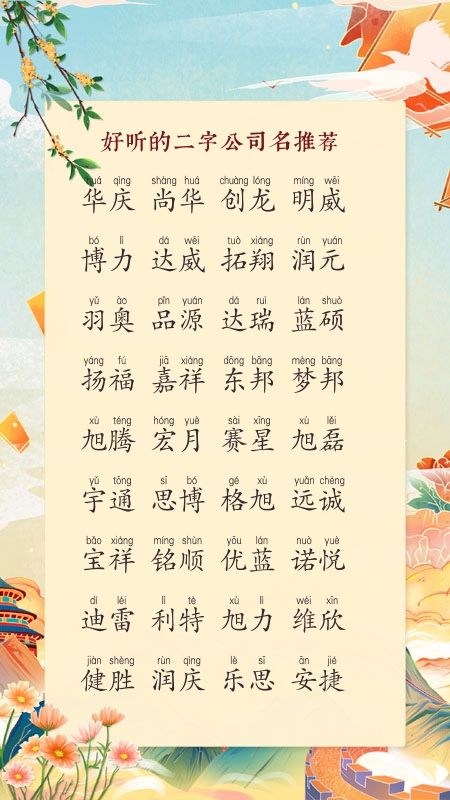 好听的二字公司名推荐
huá qìng shàng huá chuàng lóng míng wēi
华庆 尚华 创龙 明威
bó lì dá wēi tuò xiáng rùn yuán
博力 达威 拓翔 润元
yǔ ào pǐn yuán dá ruì lán shuò
羽奥 品源 达瑞 蓝硕
yáng fú jiā xiáng dōng bāng mèng bāng
扬福 嘉祥 东邦 梦邦
xù téng hóng yuè sài xīng xù lěi
旭腾 宏月 赛星 旭磊
yǔ tōng sī bó gé xù yuǎn chéng
宇通 思博 格旭 远诚
bǎo xiáng míng shùn yōu lán nuò yuè
宝祥 铭顺 优蓝 诺悦
dí léi lì tè xù lì wéi xīn
迪雷 利特 旭力 维欣
jiàn shèng rùn qìng lè sī ān jié
健胜 润庆 乐思 安捷